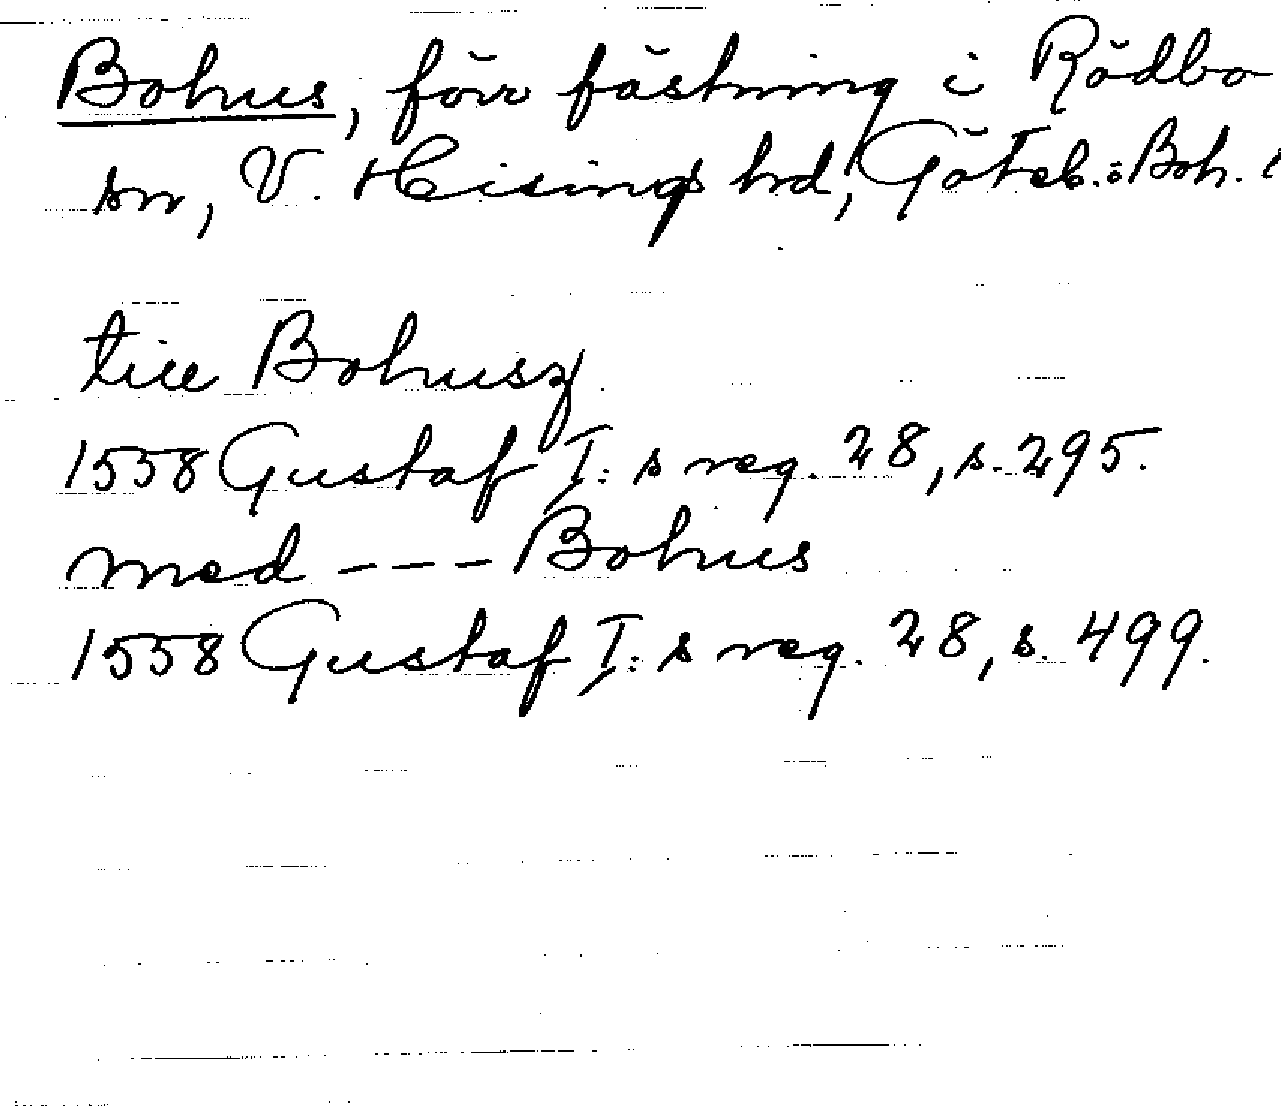 Bohus, förr fästning i Rödbo
sn, V. Hisings hd, Göteb.: Boh.
till Bohusz
1558 Gustaf I: s reg. 28, s. 295.
med --- Bohus
1558 Gustaf I: s reg. 28, s. 499.